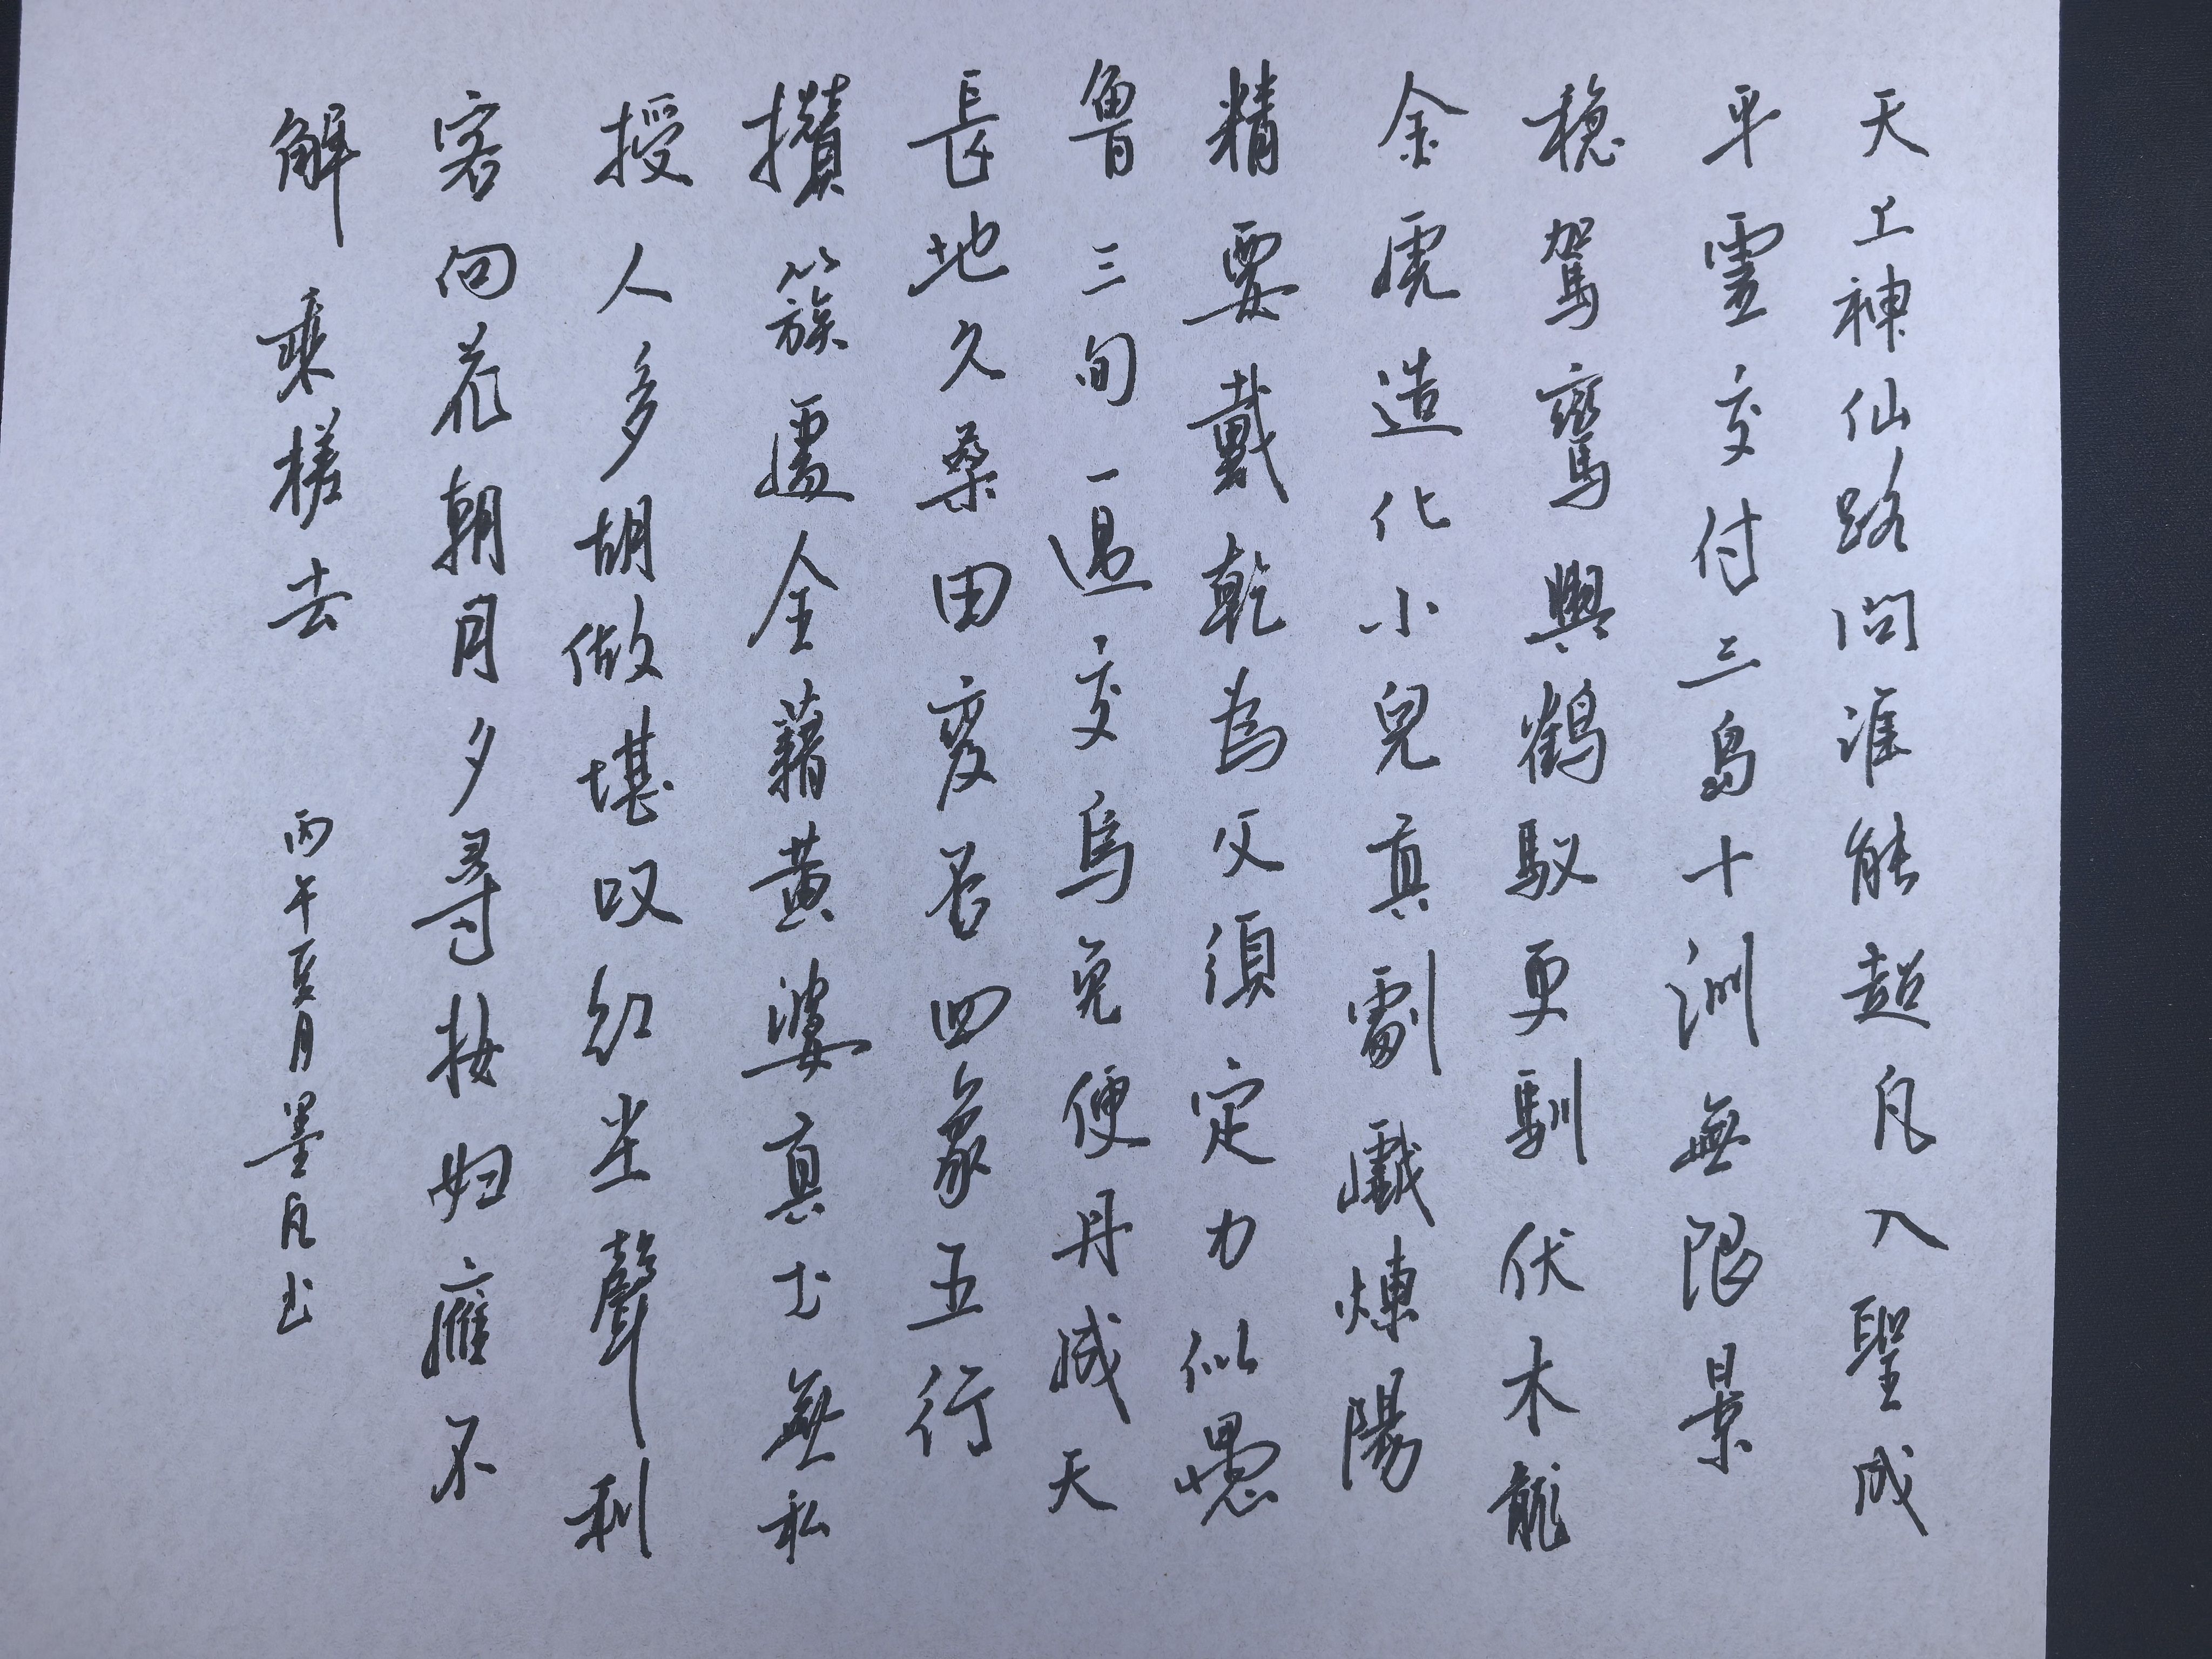 天上神仙路問誰能超凡入聖成
平霊交付三島十洲無限景
穏駕鸞輿鶴馭更馴伏木龍
金虎造化小兒真劇戲煉陽
精要戴乾為父須定力似愚
魯三旬一遇交烏兔便丹成天
長地久桑田変否四象五行
攢簇處全藉黄婆真士無私
授人多胡做堪叹紅塵聲利
客向花朝月夕尋妆妇應不
解乘槎去
丙午夏月墨凡书